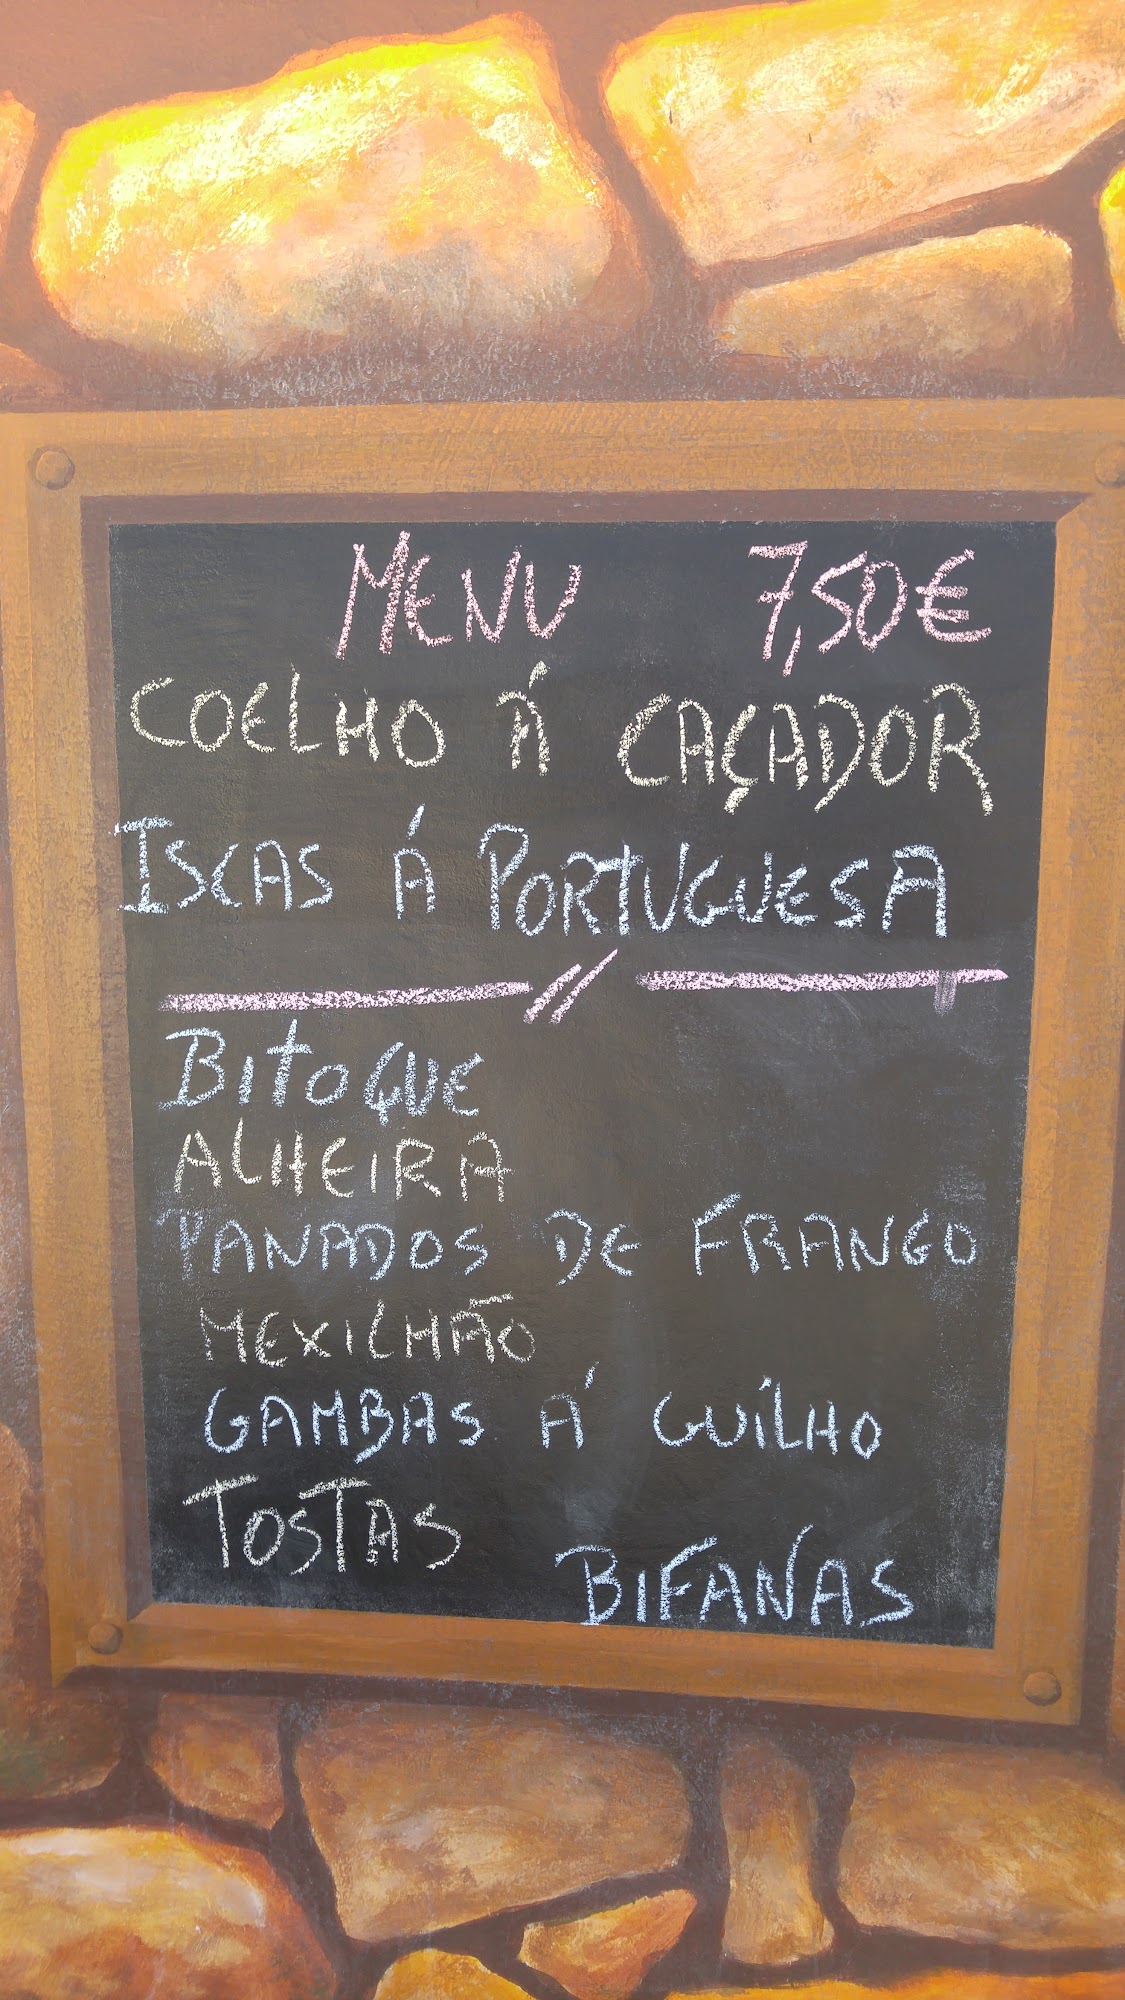 MENU 7,50€
COELHO Á CAÇADOR
ISCAS Á PORTUGUESA
BITOQUE
ALHEIRA
PANADOS DE FRANGO
MEXILHÃO
GAMBAS Á GUÍLHO
TOSTAS
BIFANAS